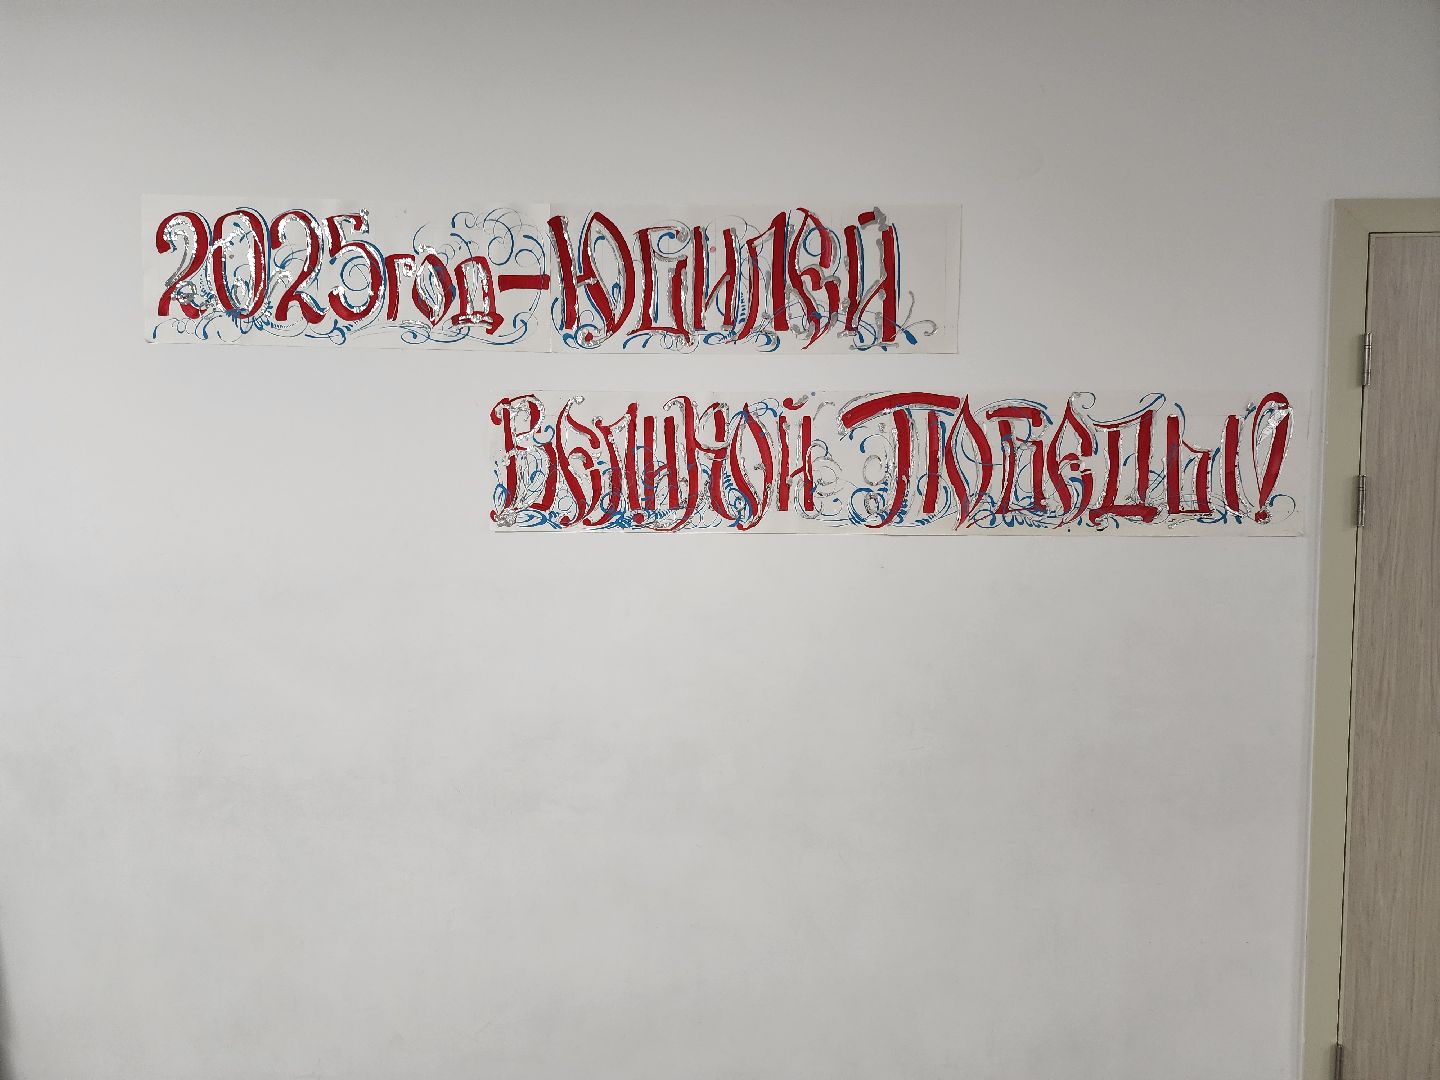 2025 год - Юбилей
Великой Победы!